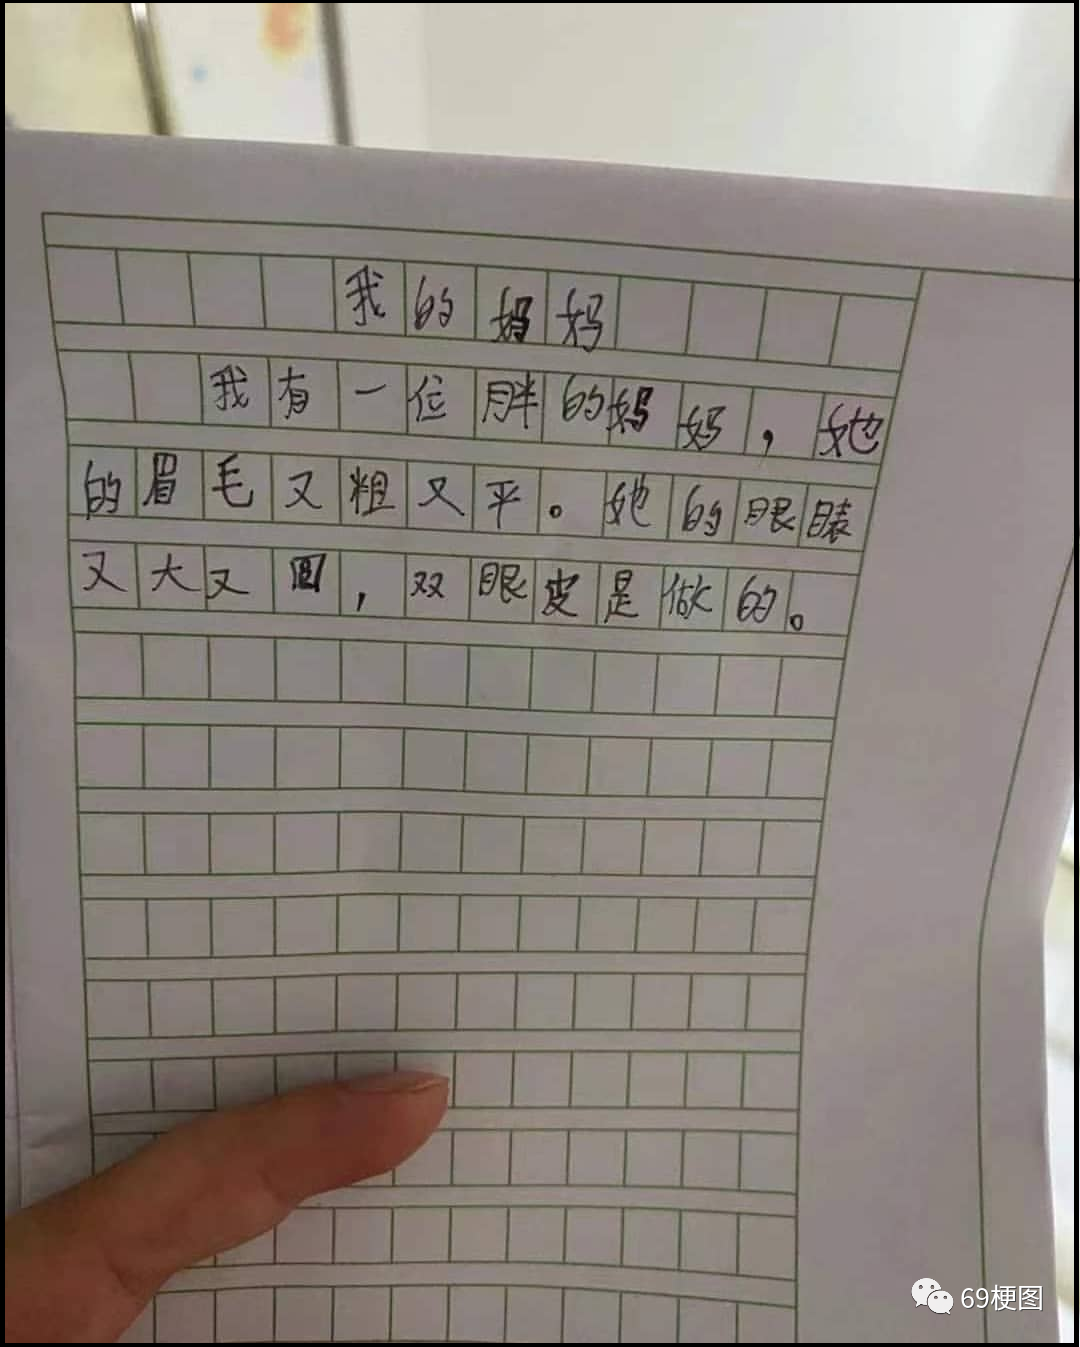 我的妈妈
我有一位胖的妈妈，她
的眉毛又粗又平。她的眼睛
又大又圆，双眼皮是做的。
69梗图